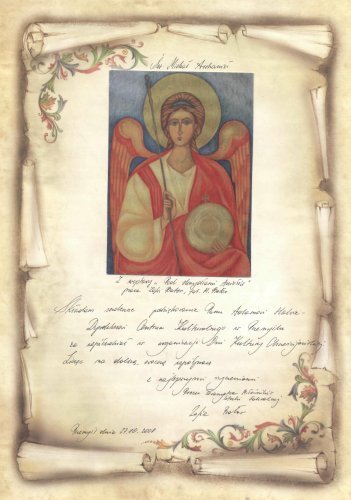 Św. Michał Archanioł
Z wystawy „Pod skrzydłami Aniołów"
praca Zofii Bator, fot. H. Bator
Składam serdeczne podziękowanie Panu
Dyrektorowi Centrum Kulturalnego w Przemyślu
za współudział w organizacji Dni Kultury Chrześcijańskiej
Liczę na dalszą owocną współpracę
z najlepszymi życzeniami
Prezes
Zofia Bator
Przemyśl dnia 2001